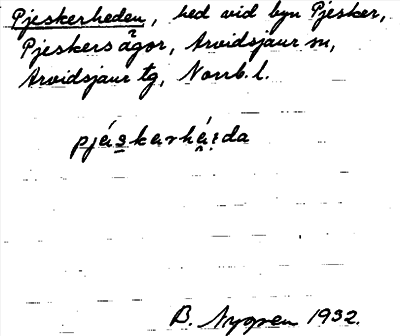 Pjeskerheden, hed vid byn Pjesker,
Pjeskers ågor, Arvidsjaur sn,
Arvidsjaur tg, Norrb. l.
pjáskarhá:da
B. Nygren 1932.